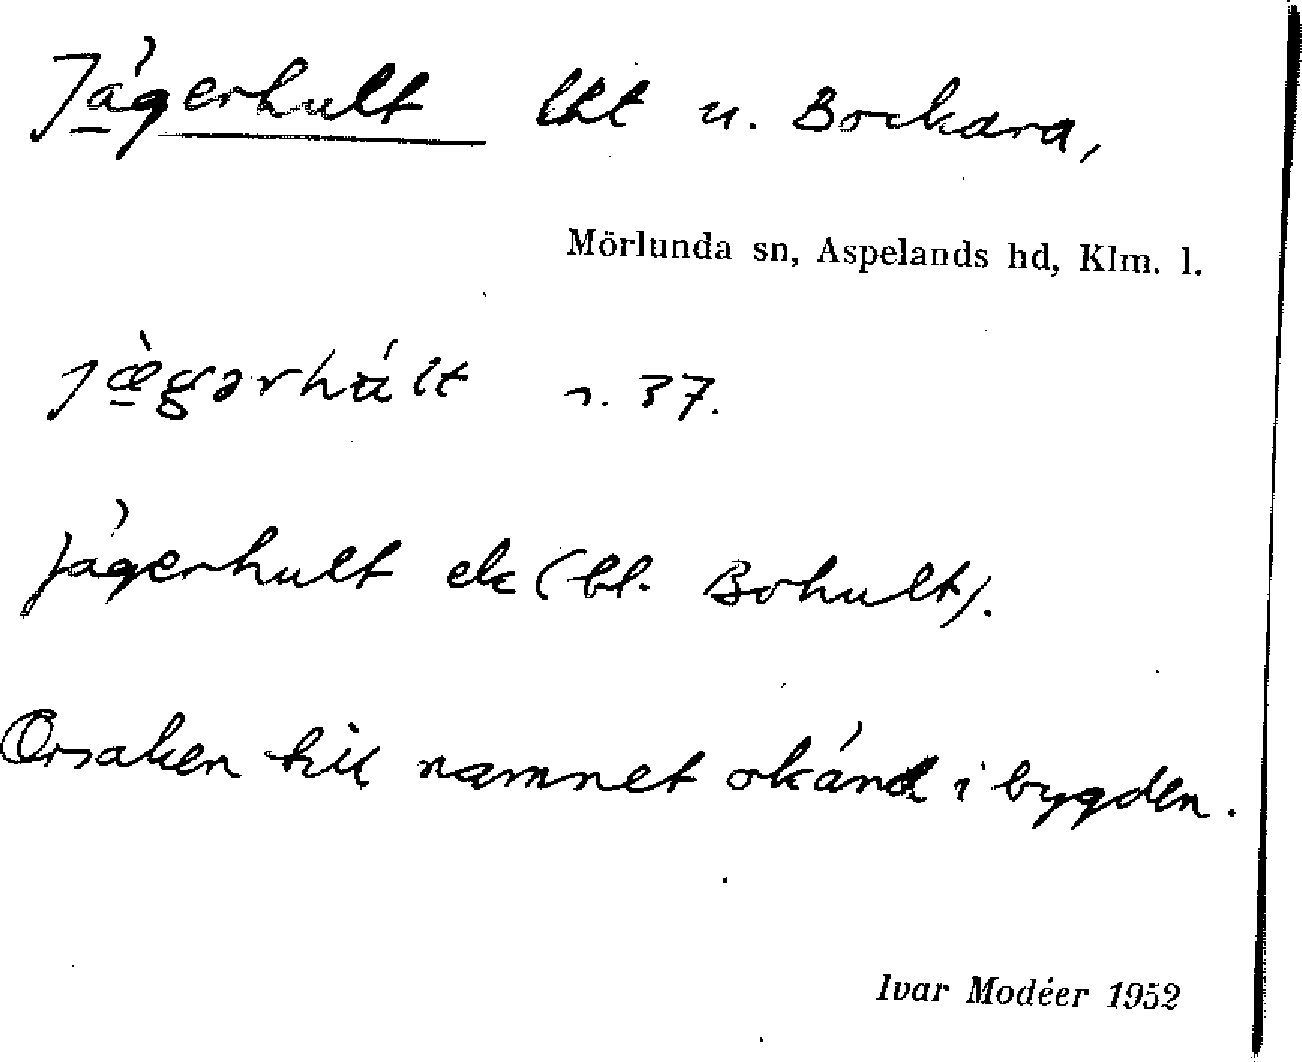 Jägerhult lht u. Bockara,
Mörlunda sn, Aspelands hd, Klm. l.
jæ̀gərhúlt n. 37.
Jägerhult ek (bl. Bohult).
Orsaken till namnet okänd i bygden.
Ivar Modéer 1952